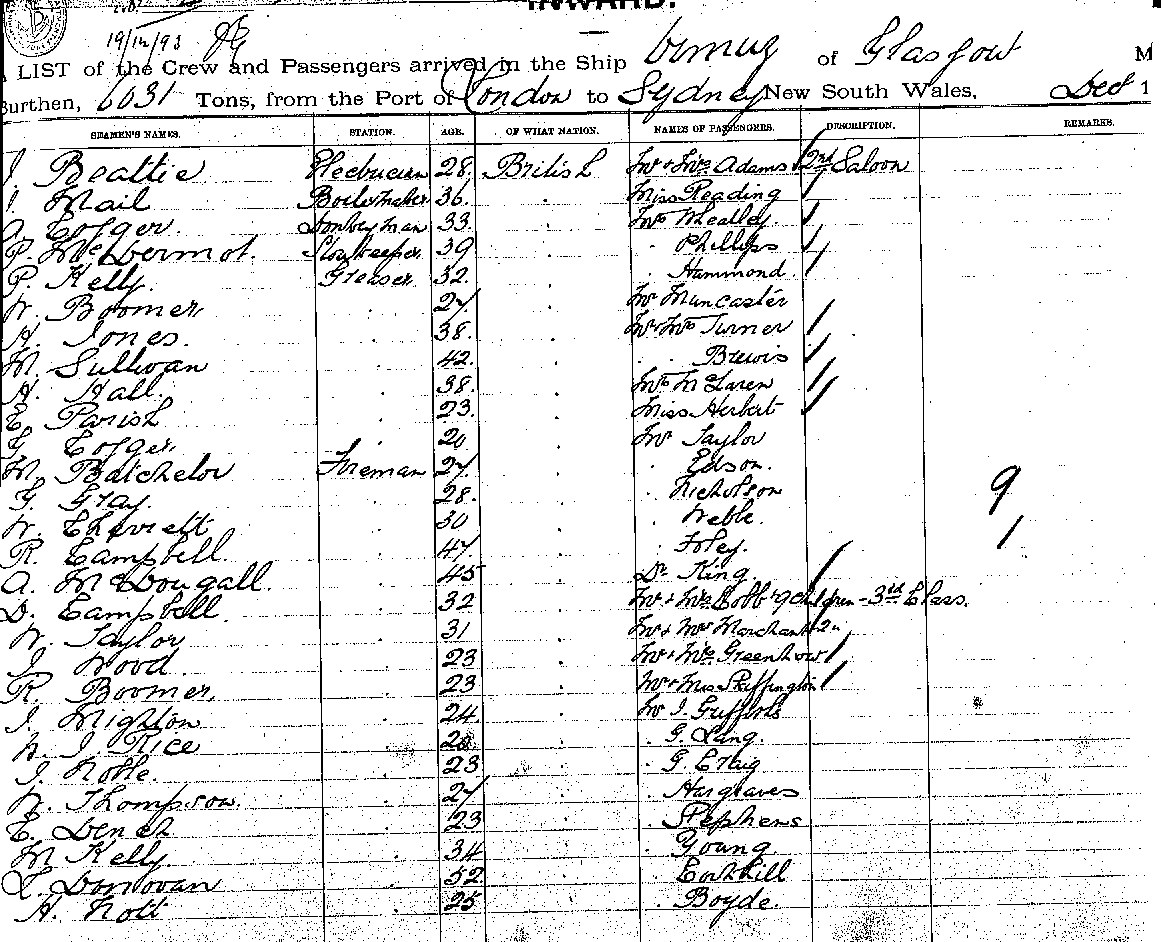 INWARD.
19/12/93
A LIST of the Crew and Passengers arrived in the Ship Ormuz of Glasgow M
Burthen, 6031 Tons, from the Port of London to Sydney New South Wales, Dec 1
SEAMEN'S NAMES. STATION. AGE. OF WHAT NATION. NAMES OF PASSENGERS. DESCRIPTION. REMARKS.
J. Beattie Electrician 28 British Mr & Mrs Adams 2nd Saloon
J. Mail Boilermaker 36 Miss Reading
A. Cosger. Donkeyman 33 Mrs Whealley
P. McDermot. Storekeeper 39 Phillips
P. Kelly. Greaser 32. Hammond
W. Boomer 27 Mr Muncaster
H. Jones. 38. Mr & Mrs Turner
M. Sullivan 42. Brewis
H. Hall. 38. Mrs McLaren
E. Parish 23. Miss Herbert
G. Cosger. 20 Mr Taylor
M. Batchelor Fireman 27 Edson.
G. Gray. 28. Nicholson 9
W. Cheverett 30 Webb. 1
R. Campbell. 47 Foley.
A. McDougall. 45 Dr King.
D. Campbell. 32 Mr & Mrs Cobb & 9 children - 3rd Class.
W. Taylor 31 Mr & Mrs Marchant 2
J. Wood 23 Mr & Mrs Greenhow
R. Boomer. 23 Mr & Mrs Skiffington
J. Mighton 24 Mr J. Griffiths
W. J. Rice 28 G. Lang.
J. Noble. 23 G. Craig
W. Thompson. 27 Hargraves
E. Dench 23 Stephens
M Kelly. 34 Young
L. Donovan 52 Corkhill
H. Nott 25 Boyde.